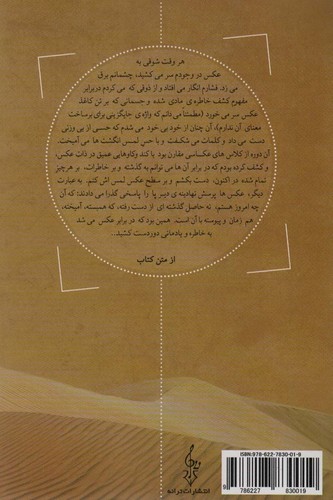 هر وقت شوقی به
عکس در وجودم سر می کشید، چشمانم برق
می زد. فشارم انگار می افتاد و از ذوقی که می کردم دربرابر
مفهوم کشف خاطره ی مادی شده و جسمانی که بر تن کاغذ
عکس سر می خورد (مطمئنا می دانم که واژه ی جایگزینی برای برساخت
معنای آن ندارم)، آن چنان از خود بی خود می شدم که حسی از بی وزنی
دست می داد و کلمات می شکفت و با حس لمس انگشت ها می آمیخت.
آن دوره از کلاس های عکاسی مقارن بود با کند وکاوهایی عمیق در ذات عکس،
و کشف کرده بودم که در برابر آن ها می توانم به گذشته و بر خاطرات، بر هرچیز
تمام شده در اکنون، دست بکشم و بر سطح عکس لمس اش کنم. به عبارت
دیگر، عکس ها پرسش نهادینه ی دیرپا را پاسخی گذرا می دادند؛ که آن
چه امروز هستم، نه حاصل گذشته ای از دست رفته، که هست، آمیخته،
هم زمان و پیوسته با آن است. همین بود که در برابر عکس می شد
به خاطره و یادمانی دوردست کشید...
از متن کتاب
ISBN: 978-622-7830-01-9
9 786227 830019
انتشارات ترانه